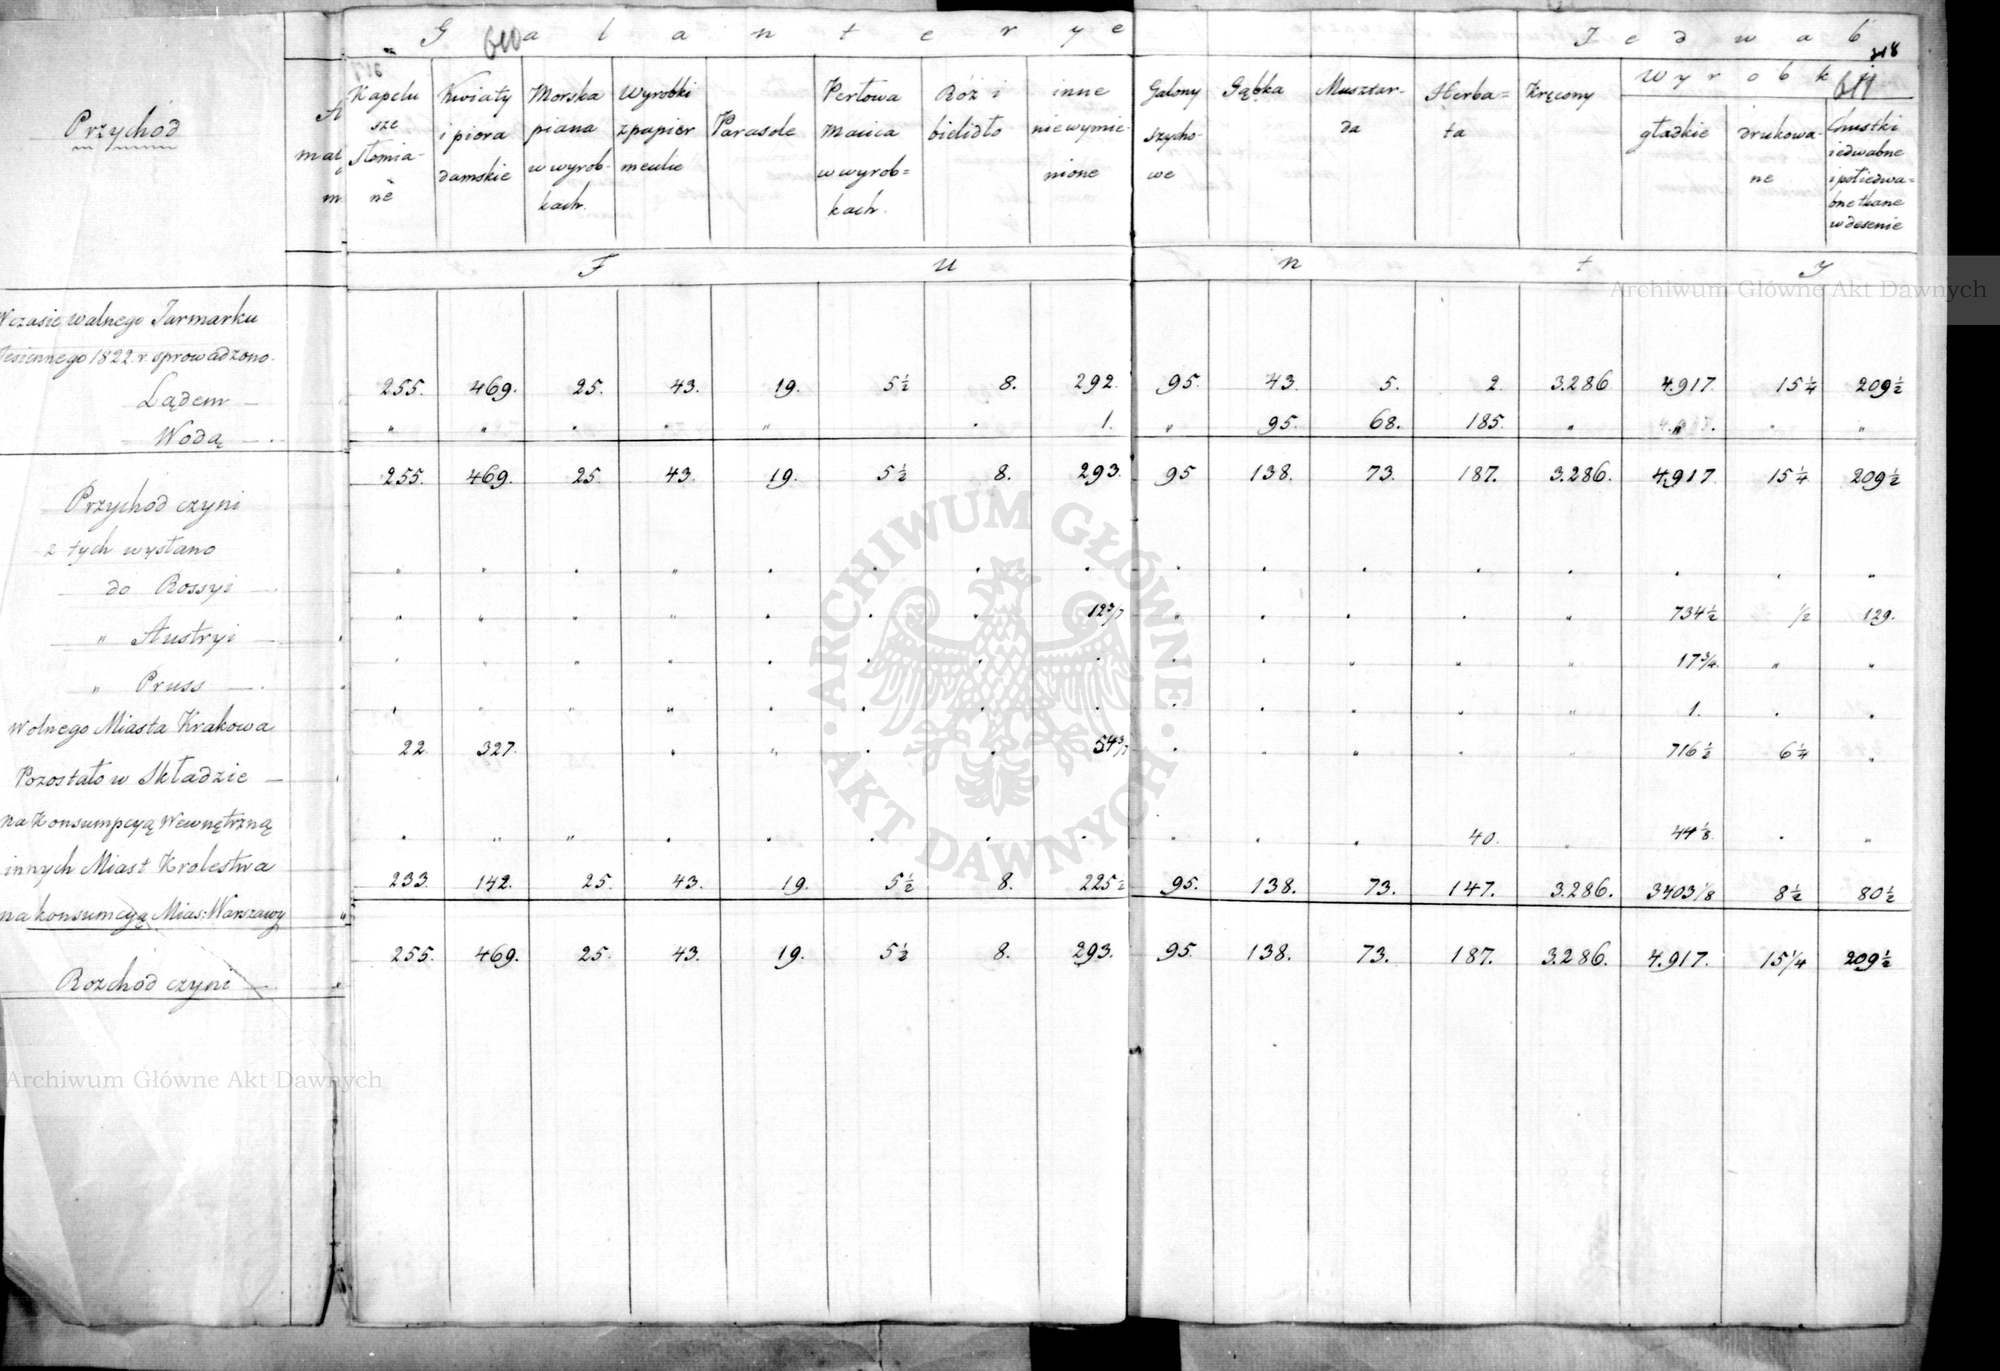 G a l a n t e r y e
J e d w a b
610
218
611
317
Przychód
Kapelu
sze
Słomia-
ne
Kwiaty
i piora
damskie
Morska
piana
w wyrob-
kach.
Wyrobki
z papier
meulie
Parasole
Perłowa
Macica
w wyrob=
kach.
Róż i
bielidło
inne
niewymie-
nione
Galony
szycho-
we
Gąbka
Musztar-
da
Herba=
ta
Kręcony
W y r o b k i
gładkie
drukowa-
ne
Chustki
iedwabne
i połiedwa=
bne tkane
w desenie
F u n t y
Wczasie walnego Jarmarku
Jesiennego 1822. r. sprowadzono.
Lądem — 255. 469. 25. 43. 19. 5 ½ 8. 292. 95. 43. 5. 2. 3.286 4.917. 15 ¼ 209 ½
Wodą — . " " " " " " 1. " 95. 68. 185. " " " "
Przychód czyni 255. 469. 25. 43. 19. 5 ½ 8. 293. 95 138. 73. 187. 3.286. 4.917. 15 ¼ 209 ½
z tych wysłano
do Rossyi — . " " " " " " " " " " " " " " " "
" Austryi — " " " " " " " 12 3/7 " " " " " 734 ½ ½ 129.
" Pruss — . " " " " " " " " " " " " " 17 ¾ " "
Wolnego Miasta Krakowa " " " " " " " " " " " " " 1. " "
Pozostało w Składzie — 22 327. " " " " 54 3/7 " " " " " 716 ½ 6 ¼ "
na Konsumpcyą Wewnętrzną
innych Miast Krolestwa " " " " " " " " " " " 40. " 44 ⅛ " "
na konsumcyą Mias: Warszawy 233. 142. 25. 43. 19. 5 ½ 8. 225 ½ 95. 138. 73. 147. 3.286. 3403 1/8 8 ½ 80 ½
Rozchód czyni — 255. 469. 25. 43. 19. 5 ½ 8. 293. 95. 138. 73. 187. 3.286. 4.917. 15 ¼ 209 ½
Archiwum Główne Akt Dawnych
ARCHIWUM GŁÓWNE · AKT DAWNYCH ·
Archiwum Główne Akt Dawnych